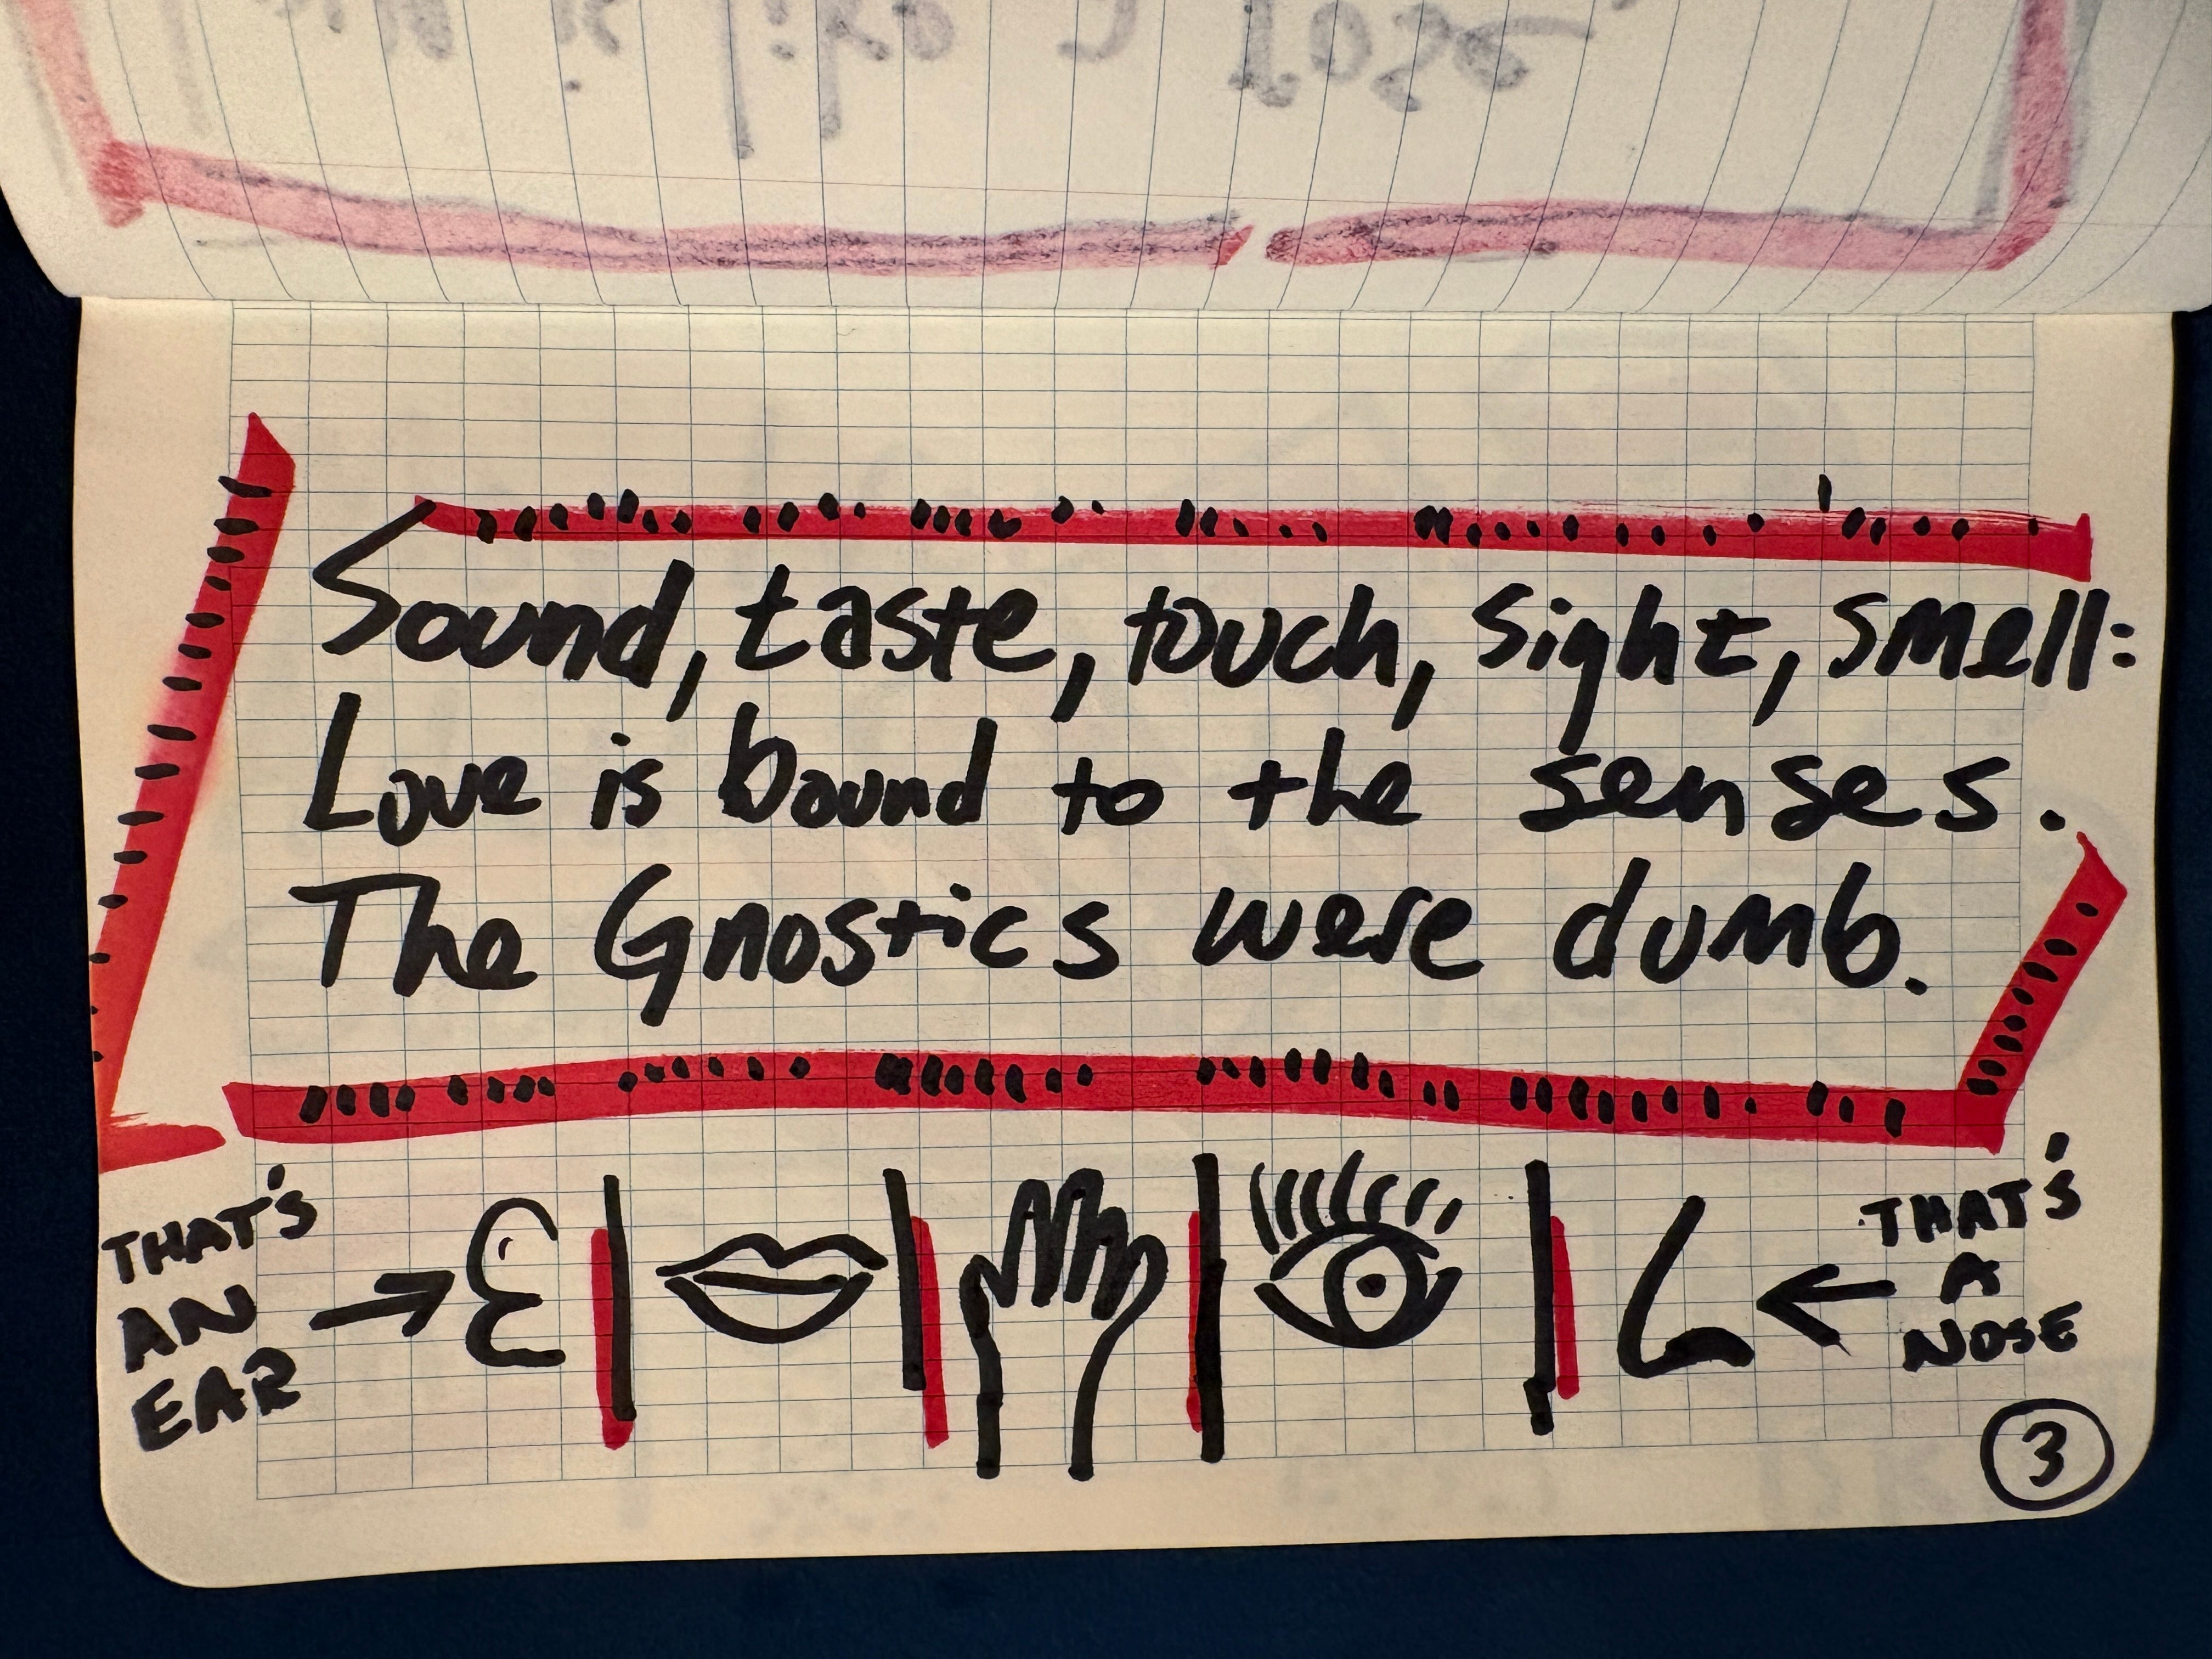 is like a rose
Sound, taste, touch, sight, smell:
Love is bound to the senses.
The Gnostics were dumb.
THAT'S
AN
EAR
THAT'S
A
NOSE
3